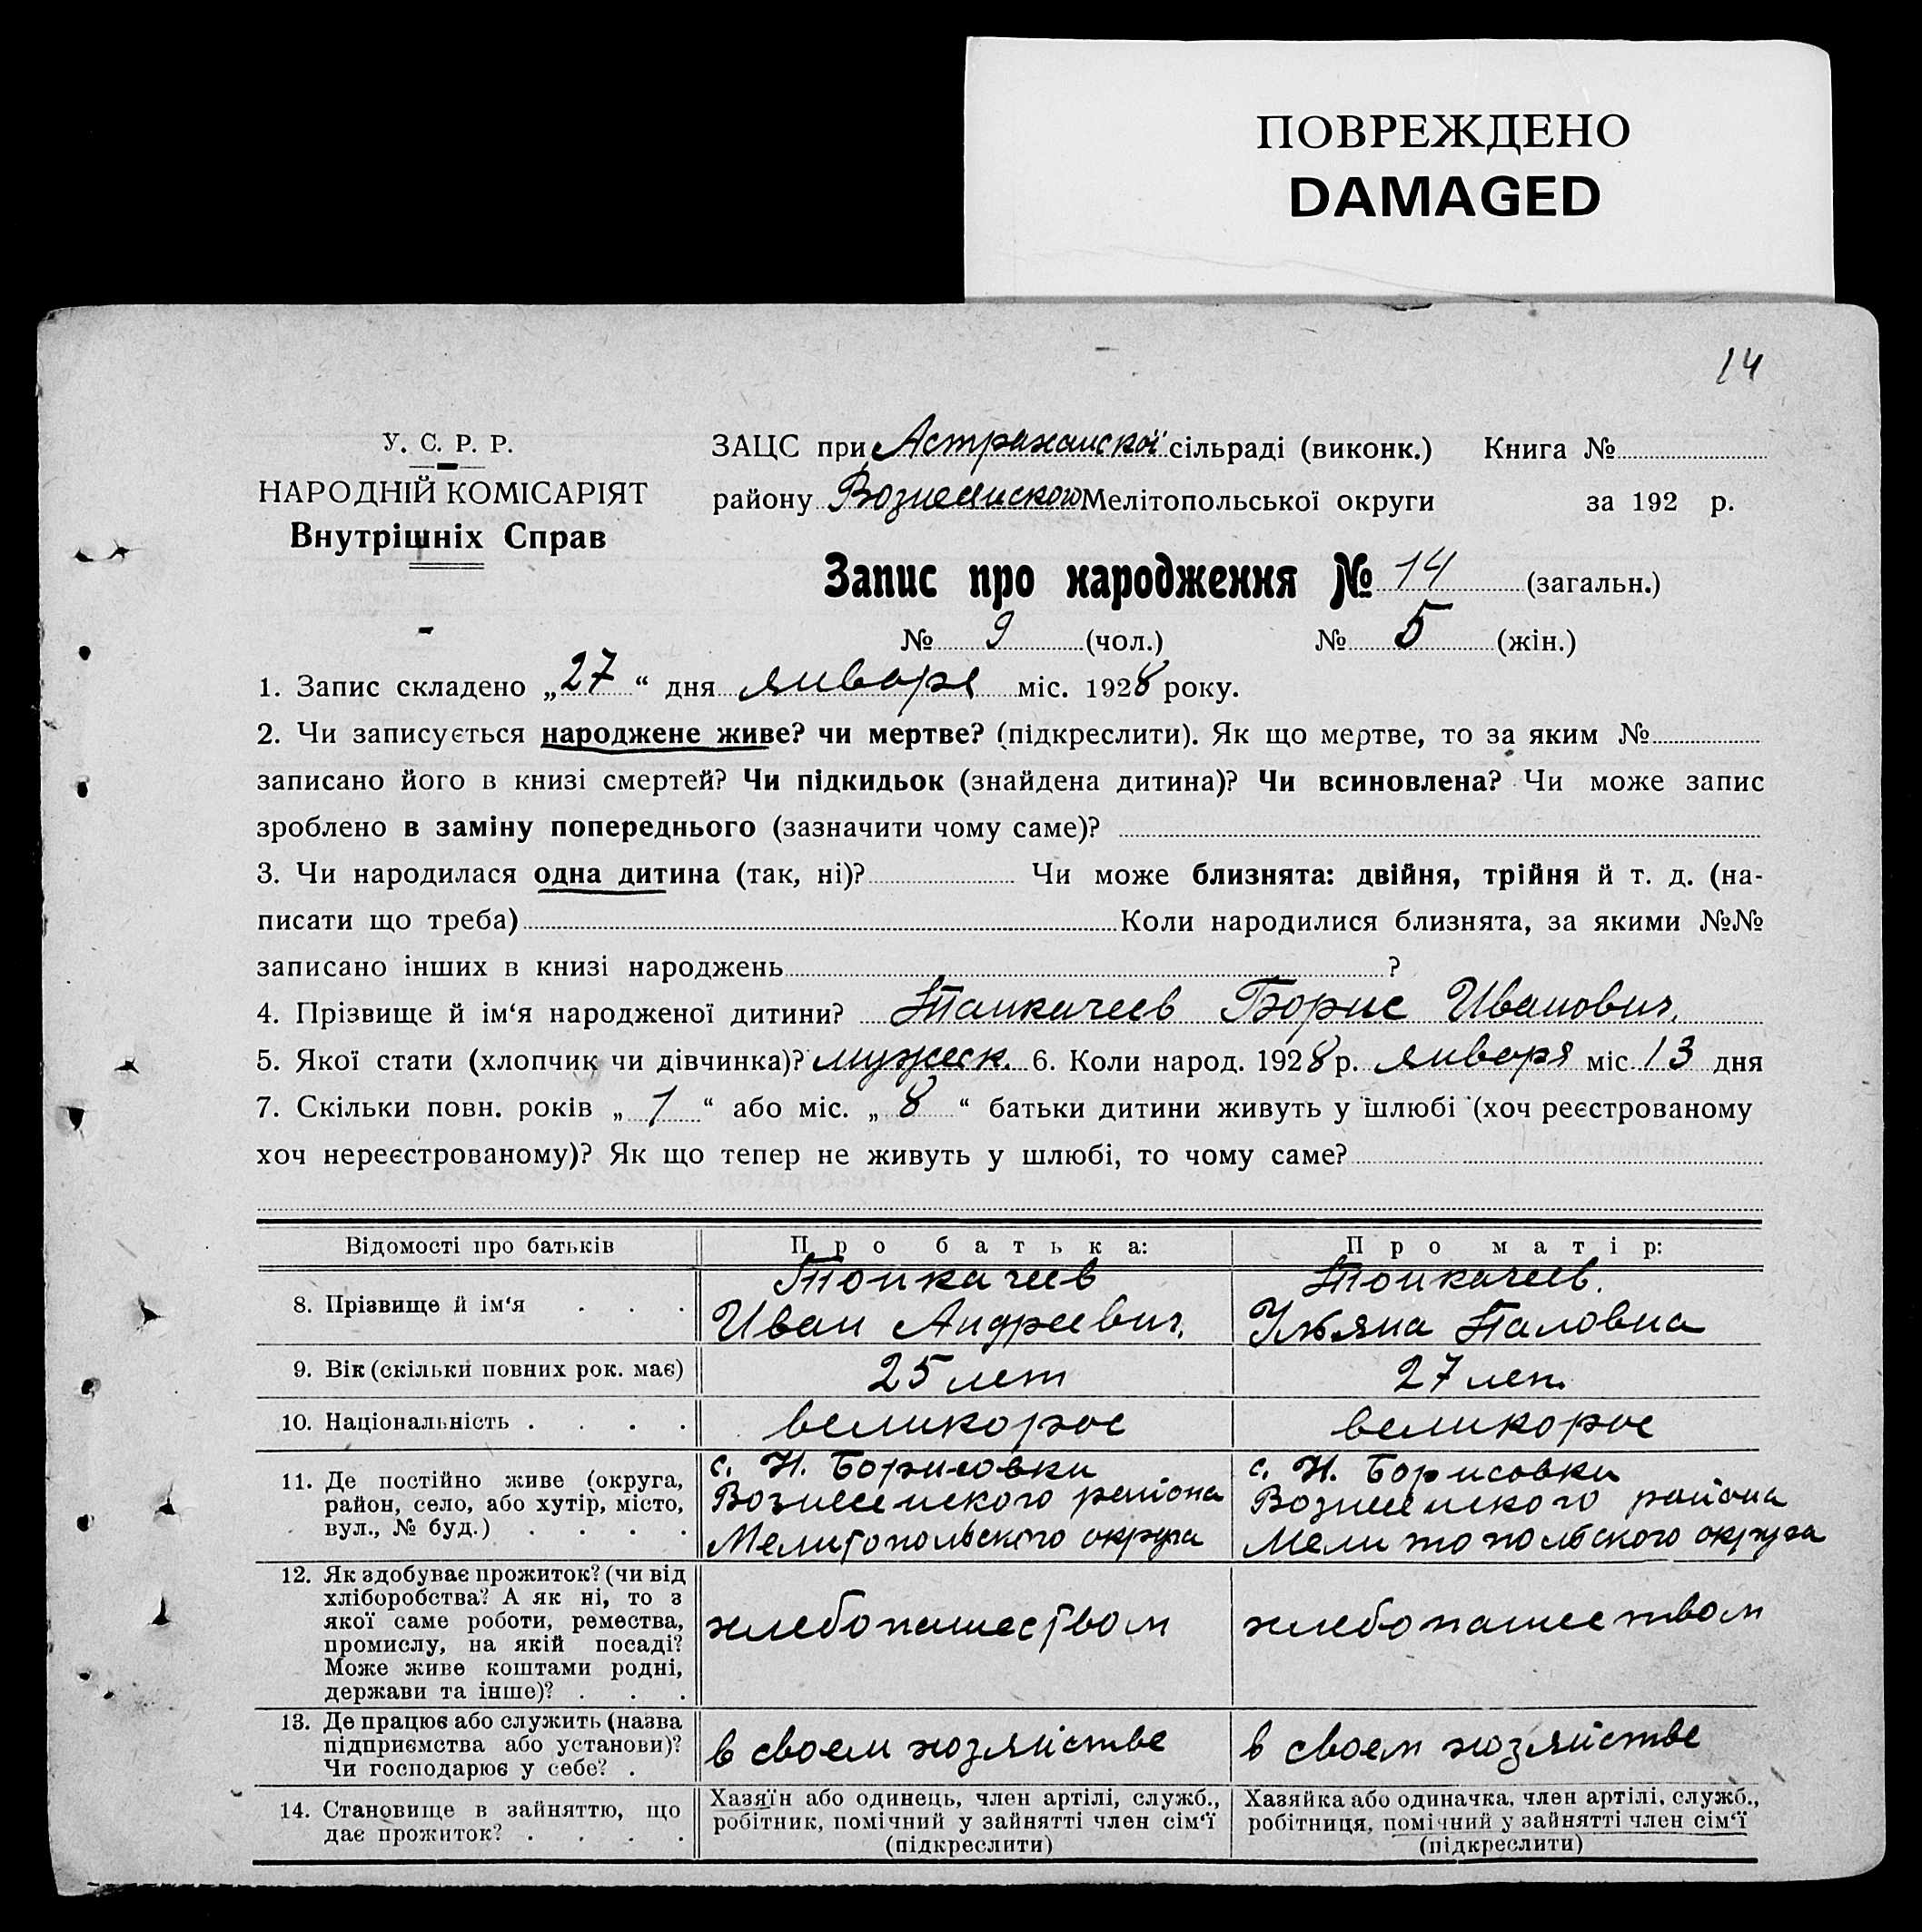 ПОВРЕЖДЕНО
DAMAGED
14
У. С. Р. Р.
НАРОДНІЙ КОМІСАРІЯТ
Внутрішніх Справ
ЗАЦС при Астраханскої сільраді (виконк.) Книга №
району Вознесенского Мелітопольської округи за 192 р.
Запис про народження № 14 (загальн.)
№ 9 (чол.) № 5 (жін.)
1. Запис складено „27“ дня января міс. 1928 року.
2. Чи записується народжене живе? чи мертве? (підкреслити). Як що мертве, то за яким №
записано його в книзі смертей? Чи підкидьок (знайдена дитина)? Чи всиновлена? Чи може запис
зроблено в заміну попереднього (зазначити чому саме)?
3. Чи народилася одна дитина (так, ні)? Чи може близнята: двійня, трійня й т. д. (на-
писати що треба) Коли народилися близнята, за якими №№
записано інших в книзі народжень ?
4. Прізвище й ім‘я народженої дитини? Топкачеев Борис Иванович.
5. Якої стати (хлопчик чи дівчинка)? мужеск. 6. Коли народ. 1928 р. января міс. 13 дня
7. Скільки повн. років „1“ або міс. „8“ батьки дитини живуть у шлюбі (хоч реєстрованому
хоч нереєстрованому)? Як що тепер не живуть у шлюбі, то чому саме?
Відомості про батьків
Про батька:
Про матір:
8. Прізвище й ім‘я . . .
Топкачеев
Иван Андреевич.
Топкачеев.
Ульяна Паловна
9. Вік (скільки повних рок. має)
25 лет
27 лет.
10. Національність . . . .
великорос
великорос
11. Де постійно живе (округа,
район, село, або хутір, місто,
вул., № буд.) . . . .
с. Н. Борисовки
Вознесенского района
Мелитопольского округа
с. Н. Борисовки
Вознесенского района
Мелитопольского округа
12. Як здобуває прожиток? (чи від
хліборобства? А як ні, то з
якої саме роботи, ремества,
промислу, на якій посаді?
Може живе коштами родні,
держави та інше)? . . .
хлебопашеством
хлебопашеством
13. Де працює або служить (назва
підприємства або установи)?
Чи господарює у себе? .
в своем хозяйстве
в своем хозяйстве
14. Становище в зайняттю, що
дає прожиток? . . . .
Хазяїн або одинець, член артілі, служб.,
робітник, помічний у зайнятті член сім‘ї
(підкреслити)
Хазяйка або одиначка, член артілі, служб.,
робітниця, помічний у зайнятті член сім‘ї
(підкреслити)